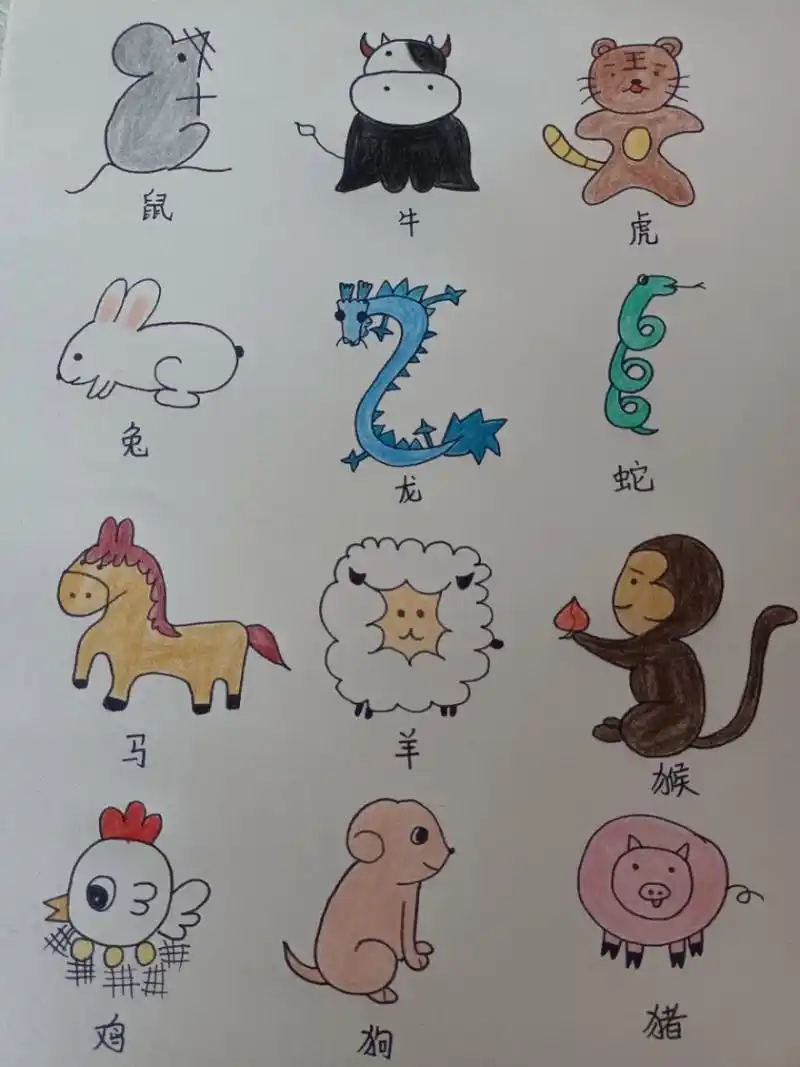 王
鼠
牛
虎
兔
龙
蛇
马
羊
猴
鸡
狗
猪